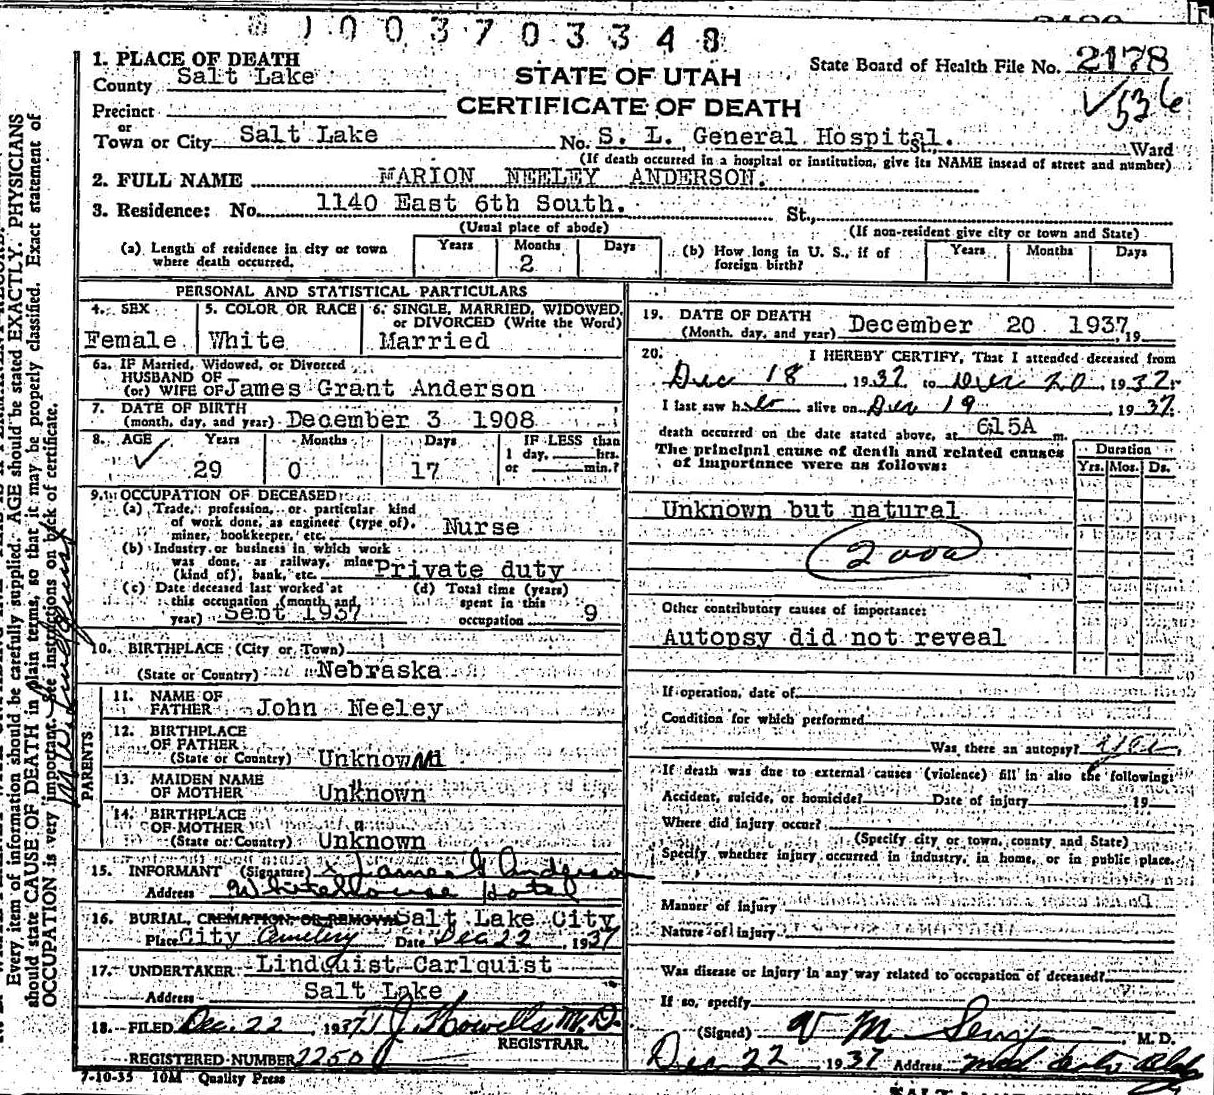 1003703348
1. PLACE OF DEATH
County Salt Lake
STATE OF UTAH
CERTIFICATE OF DEATH
State Board of Health File No. 2178
536
Precinct
or
Town or City Salt Lake No. S. L. General Hospital. St. Ward
(If death occurred in a hospital or institution, give its NAME insead of street and number)
2. FULL NAME MARION NEELEY ANDERSON.
3. Residence: No. 1140 East 6th South. St.,
(Usual place of abode) (If non-resident give city or town and State)
(a) Length of residence in city or town where death occurred. Years Months 2 Days
(b) How long in U. S., if of foreign birth? Years Months Days
PERSONAL AND STATISTICAL PARTICULARS
4. SEX Female
5. COLOR OR RACE White
6. SINGLE, MARRIED, WIDOWED, or DIVORCED (Write the Word) Married
6a. IF Married, Widowed, or Divorced
HUSBAND OF
(or) WIFE OF James Grant Anderson
7. DATE OF BIRTH
(month, day, and year) December 3 1908
8. AGE Years Months Days IF LESS than
1 day, hrs.
29 0 17 or min.?
9. OCCUPATION OF DECEASED
(a) Trade, profession, or particular kind
of work done, as engineer (type of),
miner, bookkeeper, etc. Nurse
(b) Industry or business in which work
was done, as railway, mine
(kind of), bank, etc. Private duty
(c) Date deceased last worked at
this occupation (month and
year) Sept 1937
(d) Total time (years)
spent in this
occupation 9
10. BIRTHPLACE (City or Town)
(State or Country) Nebraska
PARENTS
11. NAME OF
FATHER John Neeley
12. BIRTHPLACE
OF FATHER
(State or Country) Unknown
13. MAIDEN NAME
OF MOTHER Unknown
14. BIRTHPLACE
OF MOTHER
(State or Country) Unknown
15. INFORMANT (Signature) x James G Anderson
Address Whitehouse Hotel
16. BURIAL, CREMATION, OR REMOVAL Salt Lake City
Place City Cemetery Date Dec 22, 1937
17. UNDERTAKER Lindquist Carlquist
Address Salt Lake
18. FILED Dec. 22 1937 J Howells M.D.
REGISTRAR.
REGISTERED NUMBER 2250
7-10-35 10M Quality Press
19. DATE OF DEATH
(Month, day, and year) December 20 1937, 19
20. I HEREBY CERTIFY, That I attended deceased from
Dec 18, 1937 to Dec 20, 1937
I last saw her alive on Dec 19, 1937
death occurred on the date stated above, at 615A m.
The principal cause of death and related causes
of importance were as follows:
Duration
Yrs. Mos. Ds.
Unknown but natural
200a
Other contributory causes of importance:
Autopsy did not reveal
If operation, date of
Condition for which performed
Was there an autopsy? yes
If death was due to external causes (violence) fill in also the following:
Accident, suicide, or homicide? Date of injury 19
Where did injury occur?
(Specify city or town, county and State)
Specify whether injury occurred in industry, in home, or in public place.
Manner of injury
Nature of injury
Was disease or injury in any way related to occupation of deceased?
If so, specify
(Signed) M. D.
Dec 22, 1937 Address
Every item of information should be carefully supplied. AGE should be stated EXACTLY. PHYSICIANS
should state CAUSE OF DEATH in plain terms, so that it may be properly classified. Exact statement of
OCCUPATION is very important. See instructions on back of certificate.